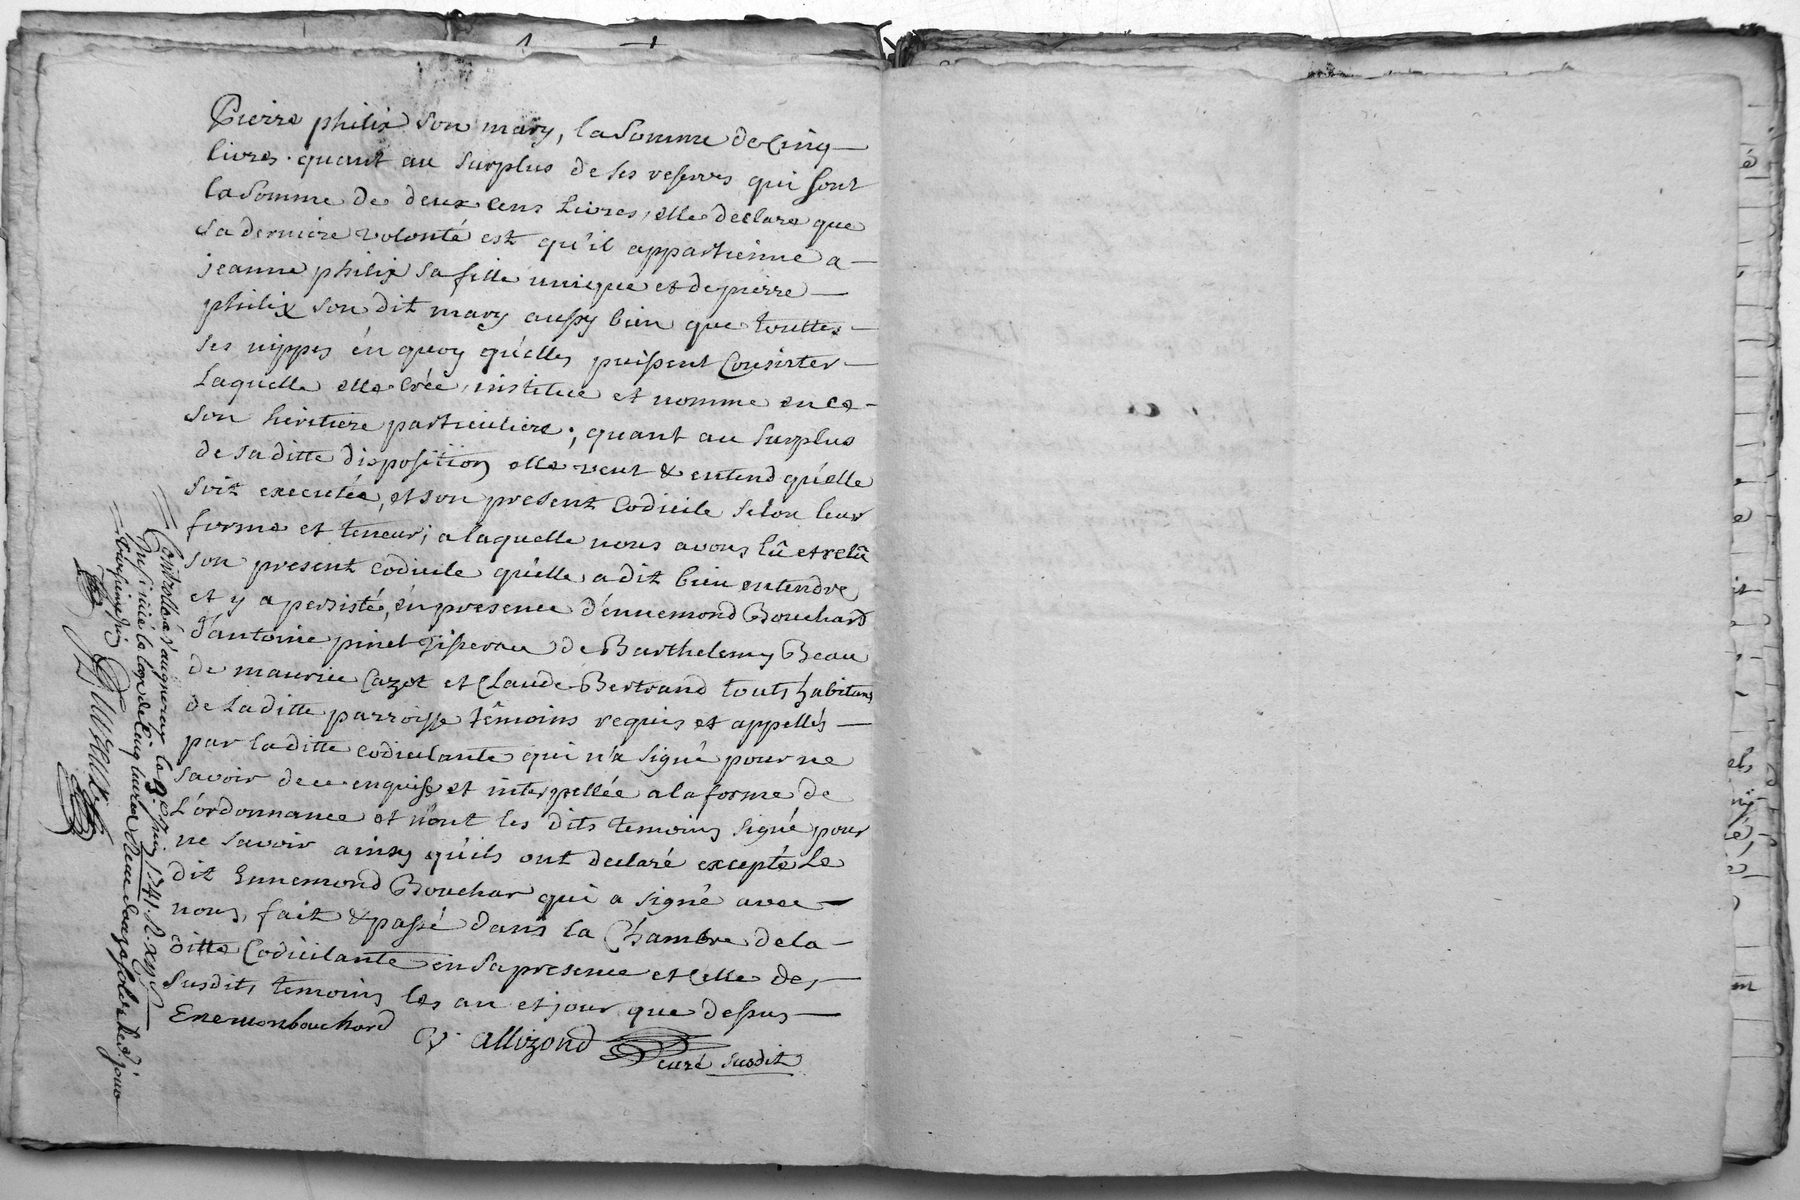 Pierre philix son mary, la somme de Cinq
livres. quant au surplus de ses reserves qui sont
la somme de deux cens Livres, elle declare que
sa derniere volonté est qu'il appartienne a
jeanne philix sa fille unique et de pierre
philix son dit mary aussy bien que touttes
ses nippes én quoy qu'elles puissent Consister
Laquelle elle crée, institue et nomme en ce
son héritiere particuliere; quant au surplus
de sa ditte disposition elle veut & entend qu'elle
soit executée, et son present Codicile selon leur
forme et teneur; a laquelle nous avons lû et relû
son present codicile qu'elle a dit bien entendre
et y a persisté, én presence d'ennemond Bouchard
d'antoine pinel Tisseran de Barthelemy Beau
de maurice Cazot et Claude Bertrand touts habitans
de la ditte parroisse témoins requis et appellés
par la ditte codicilante qui n'a signé pour ne
savoir de ce enquise et interpellée a la forme de
L'ordonnance et n'ont les dits temoins signé pour
ne savoir ainsy qu'ils ont declaré excepté Le
dit Ennemond Bouchar qui a signé avec
nous, fait & passé dans la Chambre de la
ditte Codicilante en sa presence et celle des
susdits temoins les an et jour que dessus
Enemonbouchard
allizond curé susdit
Controllé a s' aignereux le 3e juin 1741. R. xij s